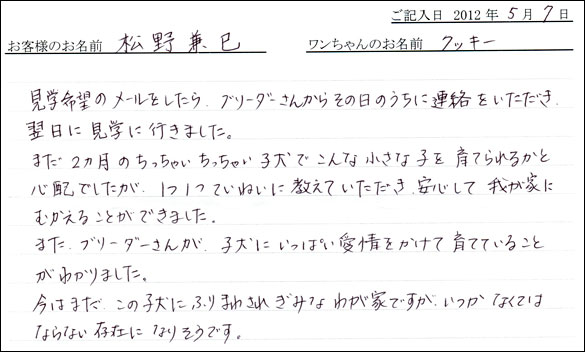 ご記入日 2012 年 5 月 7 日
お客様のお名前 松野兼巳 ワンちゃんのお名前 クッキー
見学希望のメールをしたら、ブリーダーさんからその日のうちに連絡をいただき、
翌日に見学に行きました。
まだ2ヵ月のちっちゃいちっちゃい子犬でこんな小さな子を育てられるかと
心配でしたが、1つ1つていねいに教えていただき、安心して我が家に
むかえることができました。
また、ブリーダーさんが、子犬にいっぱい愛情をかけて育てていること
がわかりました。
今はまだ、この子犬にふりまわされぎみなわが家ですが、いつかなくては
ならない存在になりそうです。